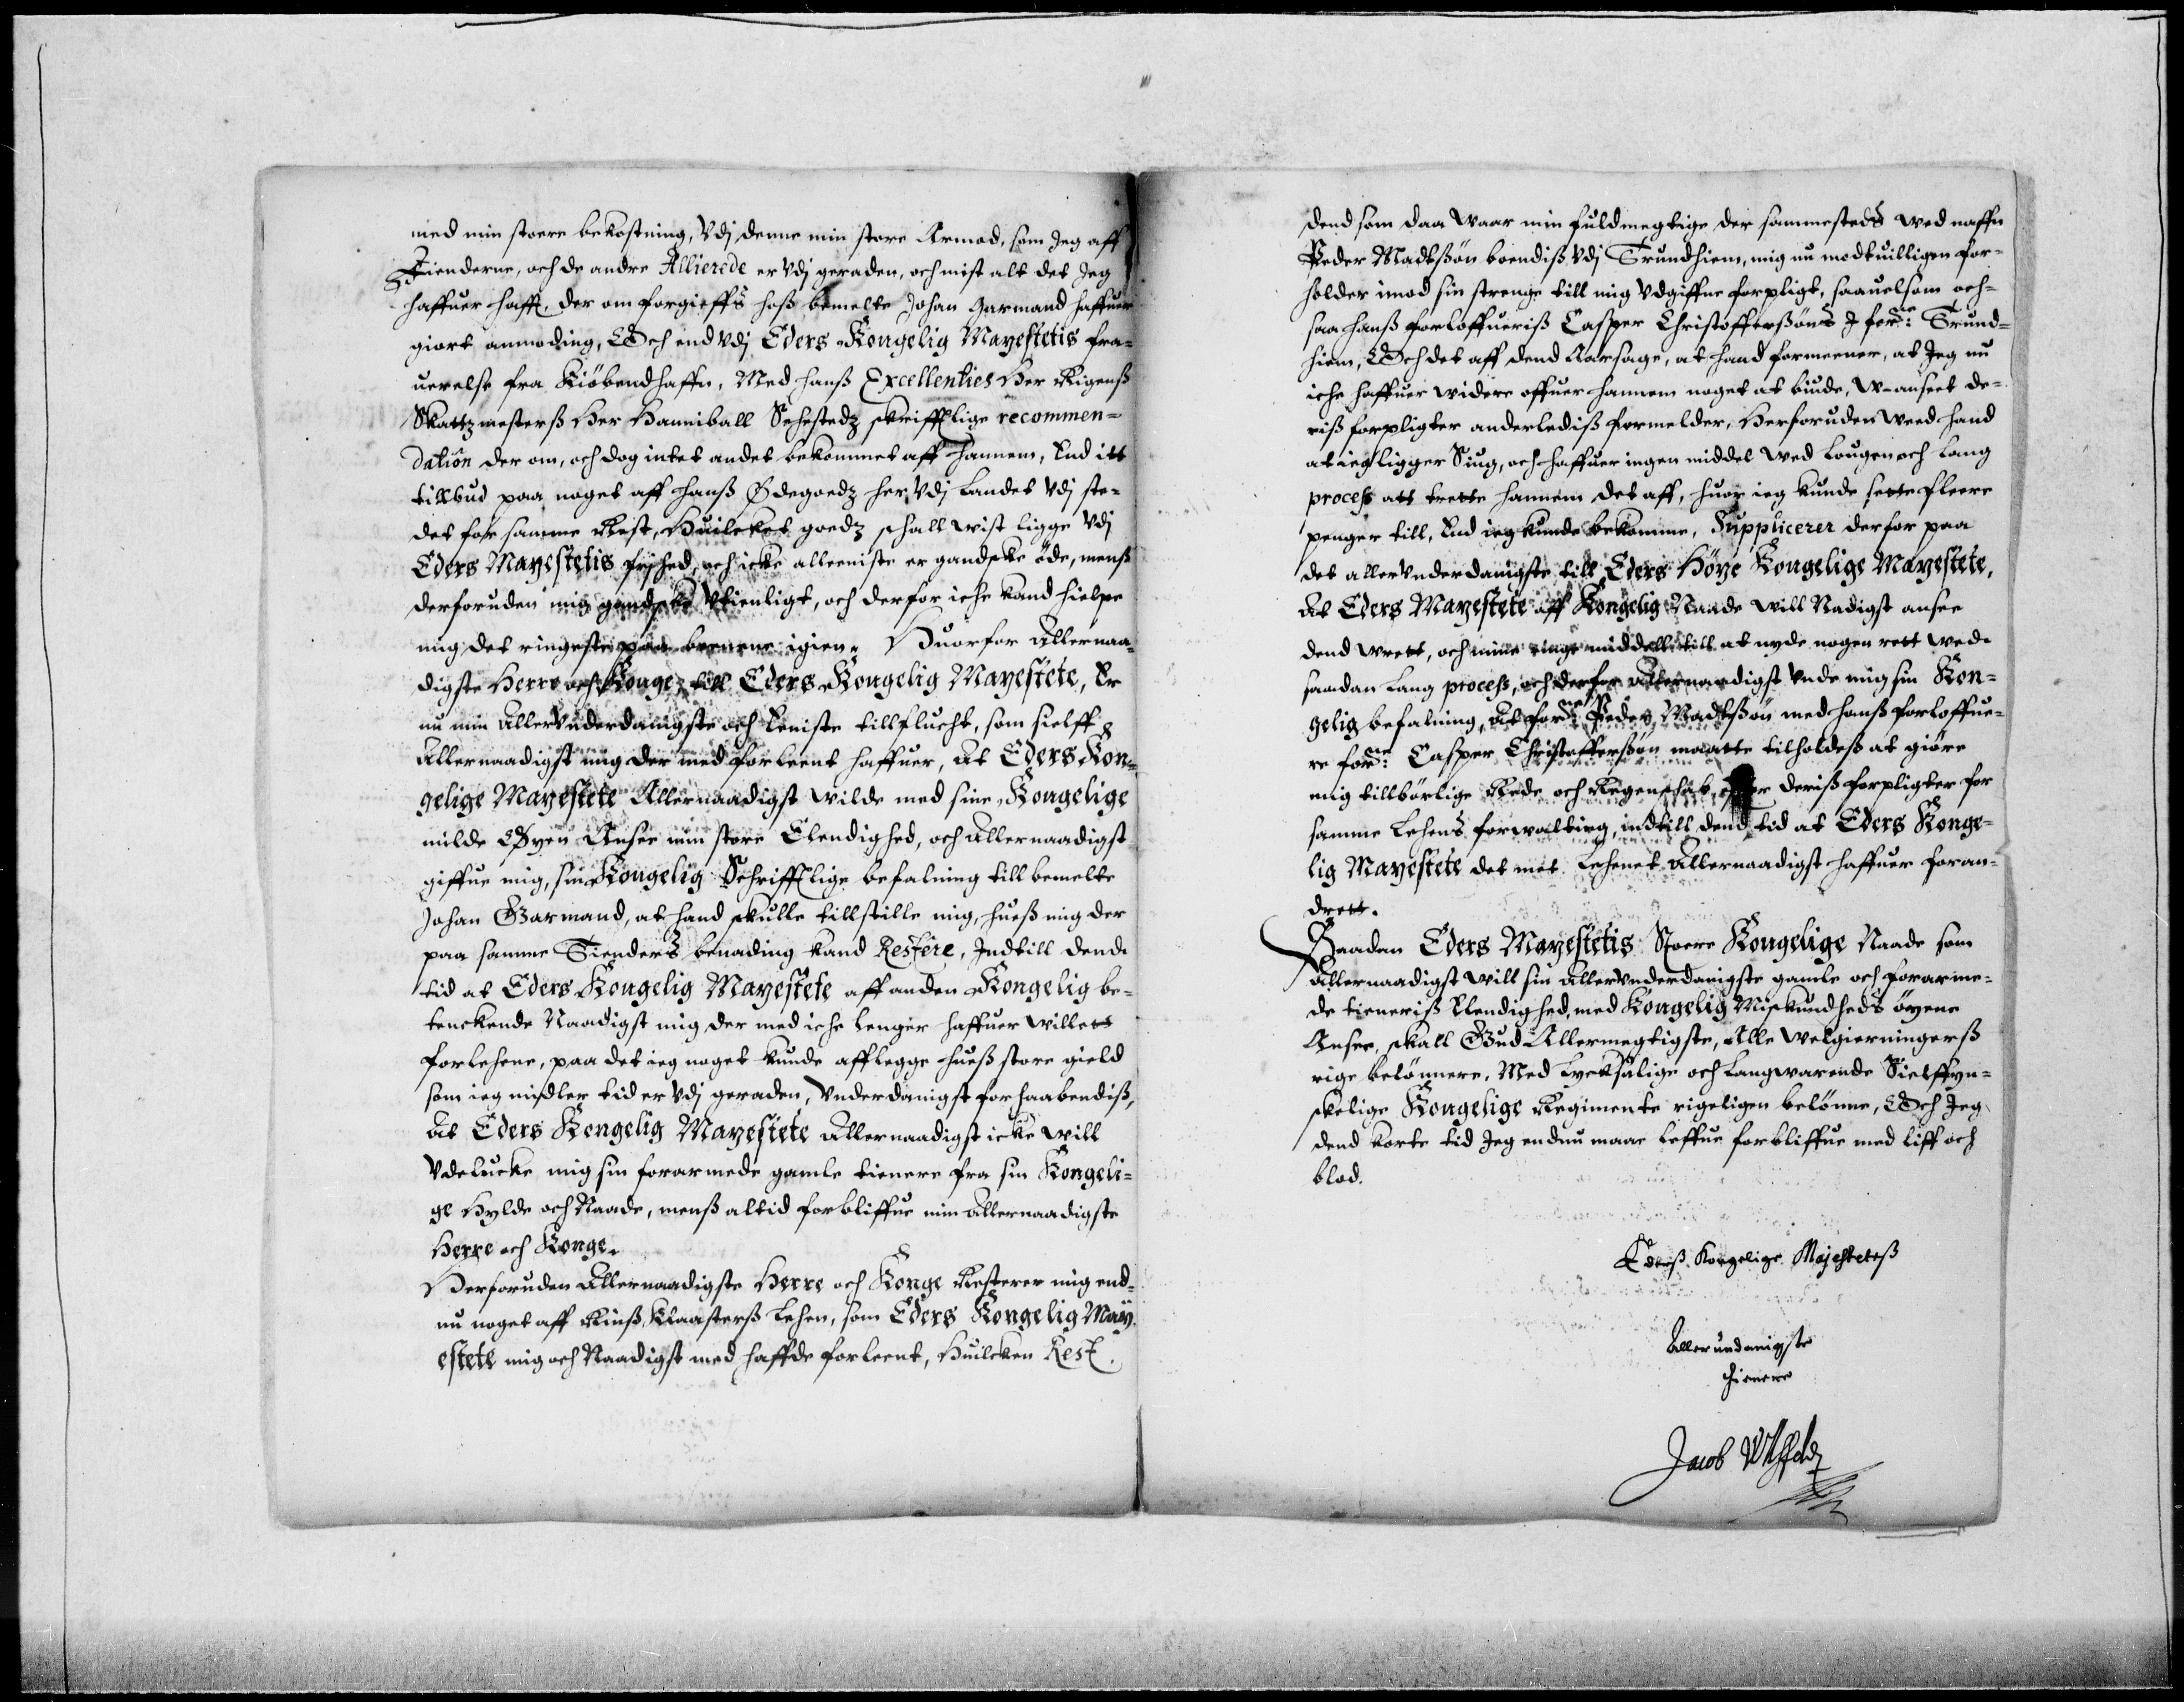 med min stoere bekostning, Vdj denne min store Armod, som Jeg aff
Fienderne, och de andre Allierede er Vdj geraden, och mist alt det Jeg
haffuer hafft, der om forgieffs hoß bemelte Johan Garmand haffuer
giort anmoding, Och end Vdj Eders Kongelig Mayestetis fra-
uerelse fra Kiöbendhaffn, Med hanß Excellenties Her Rigenß
Skattzmesterß Her Hanniball Sehestedz skrifftlige recommen-
dation der om, och dog intet andet bekommet aff hannem, End itt
tilbud paa noget aff hanß Ödegoedz her Vdj Landet Vdj ste-
det for samme Rest, Huilcket goedz schall wist ligge Vdj
Eders Mayestetis frjhed, och icke alleeniste er gandske öde, menß
derforuden mig gandske Vtienligt, och derfor iche kand hielpe
mig det ringeste paa benene igien; Huorfor Allernaa-
digste Herre och Konge, till Eders Kongelig Mayestete, Er
nu min Allervnderdanigste och Eeniste tillflucht, som sielff
Allernaadigst mig der med forleent haffuer, At Eders Kon-
gelige Mayestete Allernaadigst wilde med sine Kongelige
milde Öyen Ansee min store Elendighed, och Allernaadigst
giffue mig, sin Kongelig Schrifftlige befalning till bemelte
Johan Garmand, at hand skulle tillstille mig, hueß mig der
paa samme Tienders benading kand Restere, Indtill dend
tid at Eders Kongelig Mayestete aff anden Kongelig be-
tenckende Naadigst mig der med iche lenger haffuer willett
forlehene, paa det ieg noget kunde afflegge hueß store gield
som ieg midler tid er Vdj geraden, Vnderdanigst forhaabendiß,
At Eders Kongelig Mayestete Allernaadigst icke will
Vdelucke mig sin forarmede gamle tienere fra sin Kongeli-
ge Hylde och Naade, menß altid forbliffue min Allernaadigste
Herre och Konge.
Herforuden Allernaadigste Herre och Konge Resterer mig end-
nu noget aff Rinß Klaasterß Lehen, som Eders Kongelig May-
estete mig och Naadigst med haffde forleent, Huilcken Rest
dend som daa waar min fuldmegtige der sammesteds wed naffn
Peder Madtßön boendiß Vdj Trundhiem, mig nu modtuilligen for-
holder imod sin strenge till mig Vdgiffne forpligt, saauelsom och-
saa hanß forloffueriß Casper Christofferßöns J forne: Trund-
hiem, Och det aff dend Aarsage, at hand formeener, at Jeg nu
iche haffuer widere offuer hannem noget at biude, W-anseet de-
riß forpligter anderlediß formelder, Herforuden weed hand
at ieg ligger Siug, och haffuer ingen middel wed Lougen och Lang
process att trette hannem det aff, huor ieg kunde sette fleere
penger till, End ieg kunde bekomme, Supplicerer derfor paa
det allervnderdanigste till Eders Höye Kongelige Mayestete,
At Eders Mayestete aff Kongelig Naade will Nadigst ansee
dend wrett, och mine ringe middell till at nyde nogen rett wed
saadan Lang process, och derfor Allernaadigst Vnde mig sin Kon-
gelig befalning, At forne Peder Madtßön med hanß forloffue-
re forne: Casper Christofferßön maatte tilholdeß at giöre
mig tillbörlige Rede och Regenschab, efter deriß forpligter for
samme Lehens forwalting, indtill dend tid at Eders Konge-
lig Mayestete det met Lehenet Allernaadigst haffuer foran-
drett.
Saadan Eders Mayestetis Stoere Kongelige Naade som
Allernaadigst will sin Allervnderdanigste gamle och forarme-
de tieneriß Elendighed, med Kongelig Miskundheds öyene
Ansee, skall Gud Allermegtigste, Alle welgierningerß
rige belönnere, Med Lycksalige och Langwarende Sielffön-
skelige Kongelige Regimente rigeligen belönne, Och Jeg
dend korte tid Jeg endnu maae leffue forbliffue med liff och
blod.
Ederß Kongelige Majesteteß
Allerundanigste
thienere
Jacob Vlfeldz